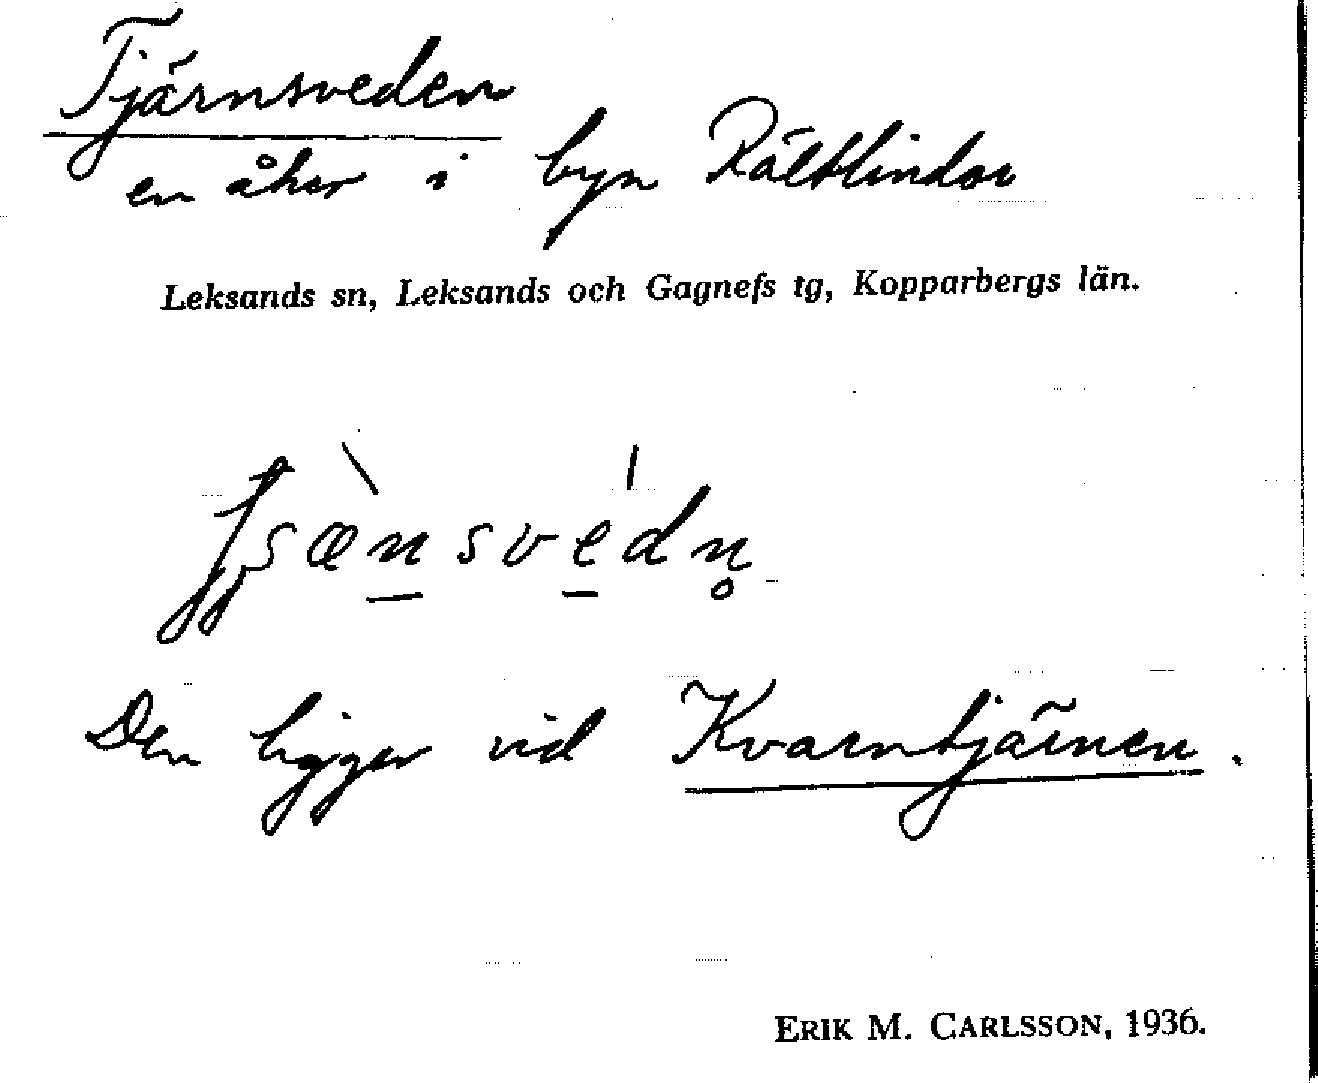 Tjärnsveden
en åker i byn Rältlindor
Leksands sn, Leksands och Gagnefs tg, Kopparbergs län.
Den ligger vid Kvarntjärnen.
ERIK M. CARLSSON, 1936.